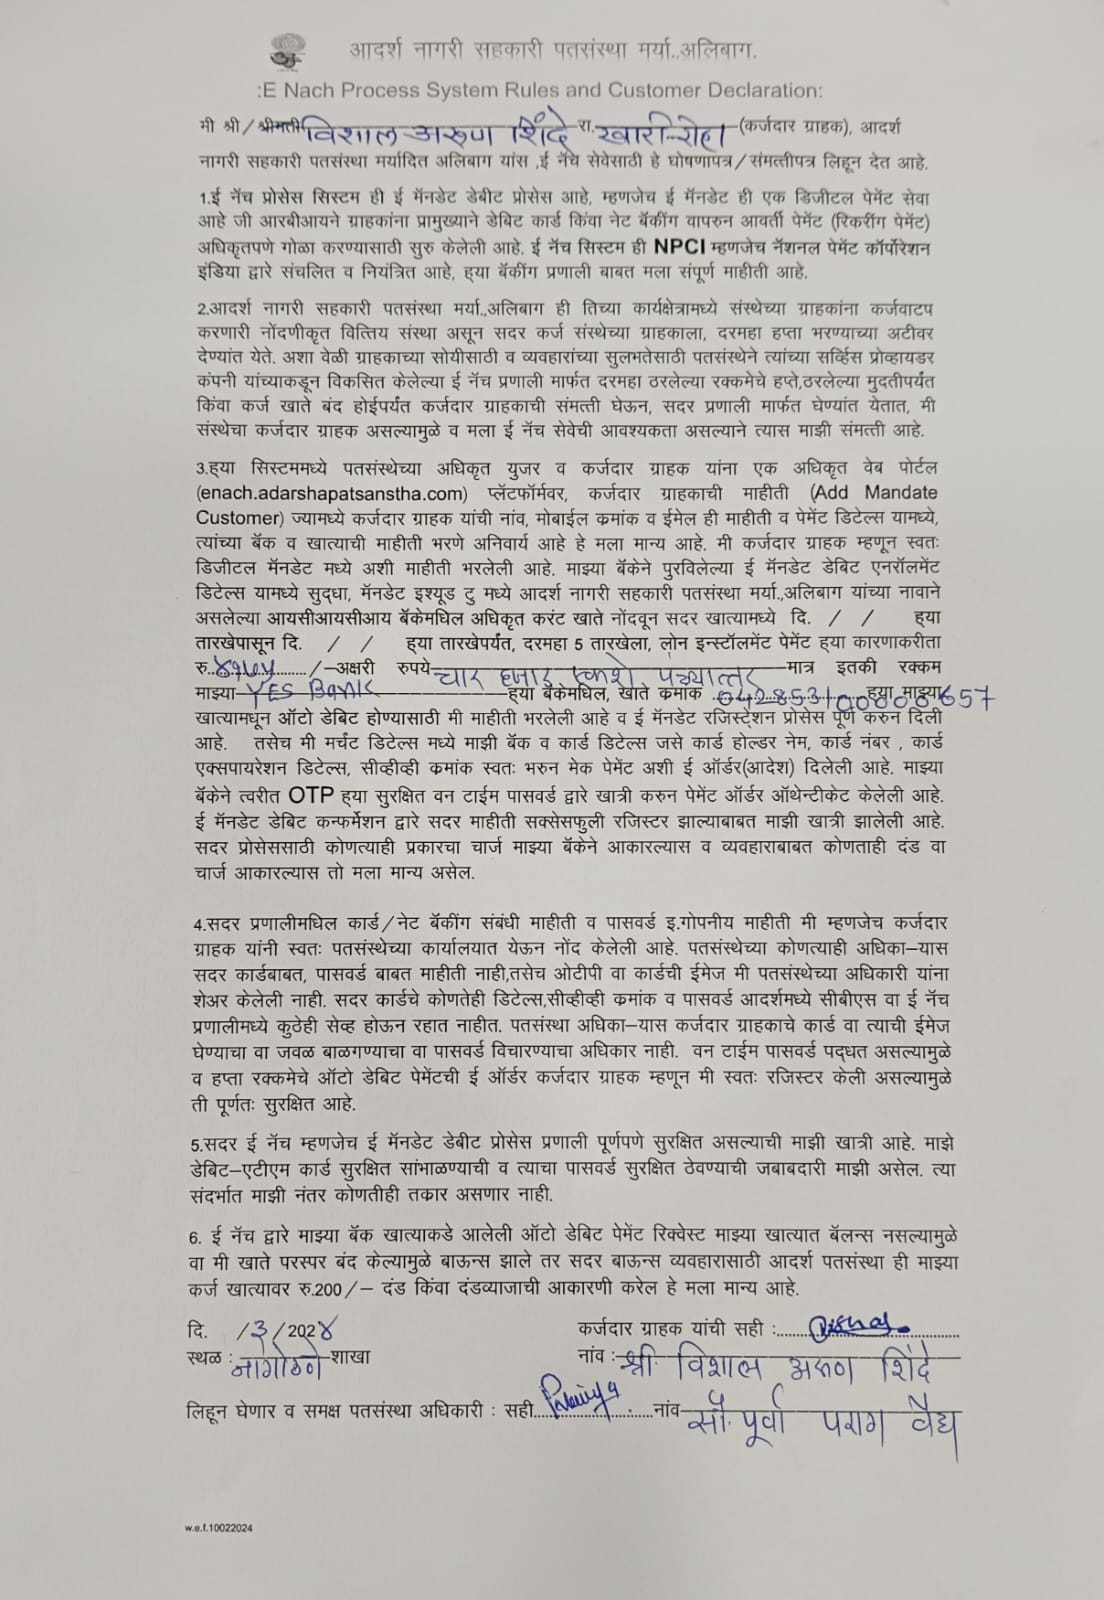 आदर्श नागरी सहकारी पतसंस्था मर्या.,अलिबाग.
:E Nach Process System Rules and Customer Declaration:
मी श्री/श्रीमती विशाल अरुण शिंदे रा. खारी-रोहा (कर्जदार ग्राहक), आदर्श
नागरी सहकारी पतसंस्था मर्यादित अलिबाग यांस ,ई नॅच सेवेसाठी हे घोषणापत्र/संमत्तीपत्र लिहून देत आहे.
1.ई नॅच प्रोसेस सिस्टम ही ई मॅनडेट डेबीट प्रोसेस आहे, म्हणजेच ई मॅनडेट ही एक डिजीटल पेमेंट सेवा
आहे जी आरबीआयने ग्राहकांना प्रामुख्याने डेबिट कार्ड किंवा नेट बॅकींग वापरुन आवर्ती पेमेंट (रिकरींग पेमेंट)
अधिकृतपणे गोळा करण्यासाठी सुरु केलेली आहे. ई नॅच सिस्टम ही NPCI म्हणजेच नॅशनल पेमेंट कॉर्पोरेशन
इंडिया द्वारे संचलित व नियंत्रित आहे, ह्या बॅकींग प्रणाली बाबत मला संपूर्ण माहीती आहे.
2.आदर्श नागरी सहकारी पतसंस्था मर्या.,अलिबाग ही तिच्या कार्यक्षेत्रामध्ये संस्थेच्या ग्राहकांना कर्जवाटप
करणारी नोंदणीकृत वित्तिय संस्था असून सदर कर्ज संस्थेच्या ग्राहकाला, दरमहा हप्ता भरण्याच्या अटीवर
देण्यांत येते. अशा वेळी ग्राहकाच्या सोयीसाठी व व्यवहारांच्या सुलभतेसाठी पतसंस्थेने त्यांच्या सर्व्हिस प्रोव्हायडर
कंपनी यांच्याकडून विकसित केलेल्या ई नॅच प्रणाली मार्फत दरमहा ठरलेल्या रक्कमेचे हप्ते,ठरलेल्या मुदतीपर्यंत
किंवा कर्ज खाते बंद होईपर्यंत कर्जदार ग्राहकाची संमत्ती घेऊन, सदर प्रणाली मार्फत घेण्यांत येतात, मी
संस्थेचा कर्जदार ग्राहक असल्यामुळे व मला ई नॅच सेवेची आवश्यकता असल्याने त्यास माझी संमत्ती आहे.
3.ह्या सिस्टममध्ये पतसंस्थेच्या अधिकृत युजर व कर्जदार ग्राहक यांना एक अधिकृत वेब पोर्टल
(enach.adarshapatsanstha.com) प्लॅटफॉर्मवर, कर्जदार ग्राहकाची माहीती (Add Mandate
Customer) ज्यामध्ये कर्जदार ग्राहक यांची नांव, मोबाईल क्रमांक व ईमेल ही माहीती व पेमेंट डिटेल्स यामध्ये,
त्यांच्या बॅक व खात्याची माहीती भरणे अनिवार्य आहे हे मला मान्य आहे. मी कर्जदार ग्राहक म्हणून स्वतः
डिजीटल मॅनडेट मध्ये अशी माहीती भरलेली आहे. माझ्या बॅकेने पुरविलेल्या ई मॅनडेट डेबिट एनरॉलमेंट
डिटेल्स यामध्ये सुद्धा, मॅनडेट इश्यूड टु मध्ये आदर्श नागरी सहकारी पतसंस्था मर्या.,अलिबाग यांच्या नावाने
असलेल्या आयसीआयसीआय बॅकेमधिल अधिकृत करंट खाते नोंदवून सदर खात्यामध्ये दि. / / ह्या
तारखेपासून दि. / / ह्या तारखेपर्यंत, दरमहा 5 तारखेला, लोन इन्स्टॉलमेंट पेमेंट ह्या कारणाकरीता
रु. ४१७५ /-अक्षरी रुपये चार हजार एकशे पंच्याहत्तर मात्र इतकी रक्कम
माझ्या YES BANK ह्या बॅकेमधिल, खाते क्रमांक 042853100000657 ह्या माझ्या
खात्यामधून ऑटो डेबिट होण्यासाठी मी माहीती भरलेली आहे व ई मॅनडेट रजिस्ट्रेशन प्रोसेस पूर्ण करुन दिली
आहे. तसेच मी मर्चंट डिटेल्स मध्ये माझी बॅक व कार्ड डिटेल्स जसे कार्ड होल्डर नेम, कार्ड नंबर , कार्ड
एक्सपायरेशन डिटेल्स, सीव्हीव्ही क्रमांक स्वतः भरुन मेक पेमेंट अशी ई ऑर्डर(आदेश) दिलेली आहे. माझ्या
बॅकेने त्वरीत OTP ह्या सुरक्षित वन टाईम पासवर्ड द्वारे खात्री करुन पेमेंट ऑर्डर ऑथेन्टीकेट केलेली आहे.
ई मॅनडेट डेबिट कन्फर्मेशन द्वारे सदर माहीती सक्सेसफुली रजिस्टर झाल्याबाबत माझी खात्री झालेली आहे.
सदर प्रोसेससाठी कोणत्याही प्रकारचा चार्ज माझ्या बॅकेने आकारल्यास व व्यवहाराबाबत कोणताही दंड वा
चार्ज आकारल्यास तो मला मान्य असेल.
4.सदर प्रणालीमधिल कार्ड/नेट बॅकींग संबंधी माहीती व पासवर्ड इ.गोपनीय माहीती मी म्हणजेच कर्जदार
ग्राहक यांनी स्वतः पतसंस्थेच्या कार्यालयात येऊन नोंद केलेली आहे. पतसंस्थेच्या कोणत्याही अधिका-यास
सदर कार्डबाबत, पासवर्ड बाबत माहीती नाही,तसेच ओटीपी वा कार्डची ईमेज मी पतसंस्थेच्या अधिकारी यांना
शेअर केलेली नाही. सदर कार्डचे कोणतेही डिटेल्स,सीव्हीव्ही क्रमांक व पासवर्ड आदर्शमध्ये सीबीएस वा ई नॅच
प्रणालीमध्ये कुठेही सेव्ह होऊन रहात नाहीत. पतसंस्था अधिका-यास कर्जदार ग्राहकाचे कार्ड वा त्याची ईमेज
घेण्याचा वा जवळ बाळगण्याचा वा पासवर्ड विचारण्याचा अधिकार नाही. वन टाईम पासवर्ड पद्धत असल्यामुळे
व हप्ता रक्कमेचे ऑटो डेबिट पेमेंटची ई ऑर्डर कर्जदार ग्राहक म्हणून मी स्वतः रजिस्टर केली असल्यामुळे
ती पूर्णतः सुरक्षित आहे.
5.सदर ई नॅच म्हणजेच ई मॅनडेट डेबीट प्रोसेस प्रणाली पूर्णपणे सुरक्षित असल्याची माझी खात्री आहे. माझे
डेबिट-एटीएम कार्ड सुरक्षित सांभाळण्याची व त्याचा पासवर्ड सुरक्षित ठेवण्याची जबाबदारी माझी असेल. त्या
संदर्भात माझी नंतर कोणतीही तक्रार असणार नाही.
6. ई नॅच द्वारे माझ्या बॅक खात्याकडे आलेली ऑटो डेबिट पेमेंट रिक्वेस्ट माझ्या खात्यात बॅलन्स नसल्यामुळे
वा मी खाते परस्पर बंद केल्यामुळे बाऊन्स झाले तर सदर बाऊन्स व्यवहारासाठी आदर्श पतसंस्था ही माझ्या
कर्ज खात्यावर रु.200/- दंड किंवा दंडव्याजाची आकारणी करेल हे मला मान्य आहे.
दि. /3/2024 कर्जदार ग्राहक यांची सही :
स्थळ : नागोठणे शाखा नांव : श्री. विशाल अरुण शिंदे
लिहून घेणार व समक्ष पतसंस्था अधिकारी : सही नांव सौ. पूर्वा पराग वैद्य
w.e.f.10022024